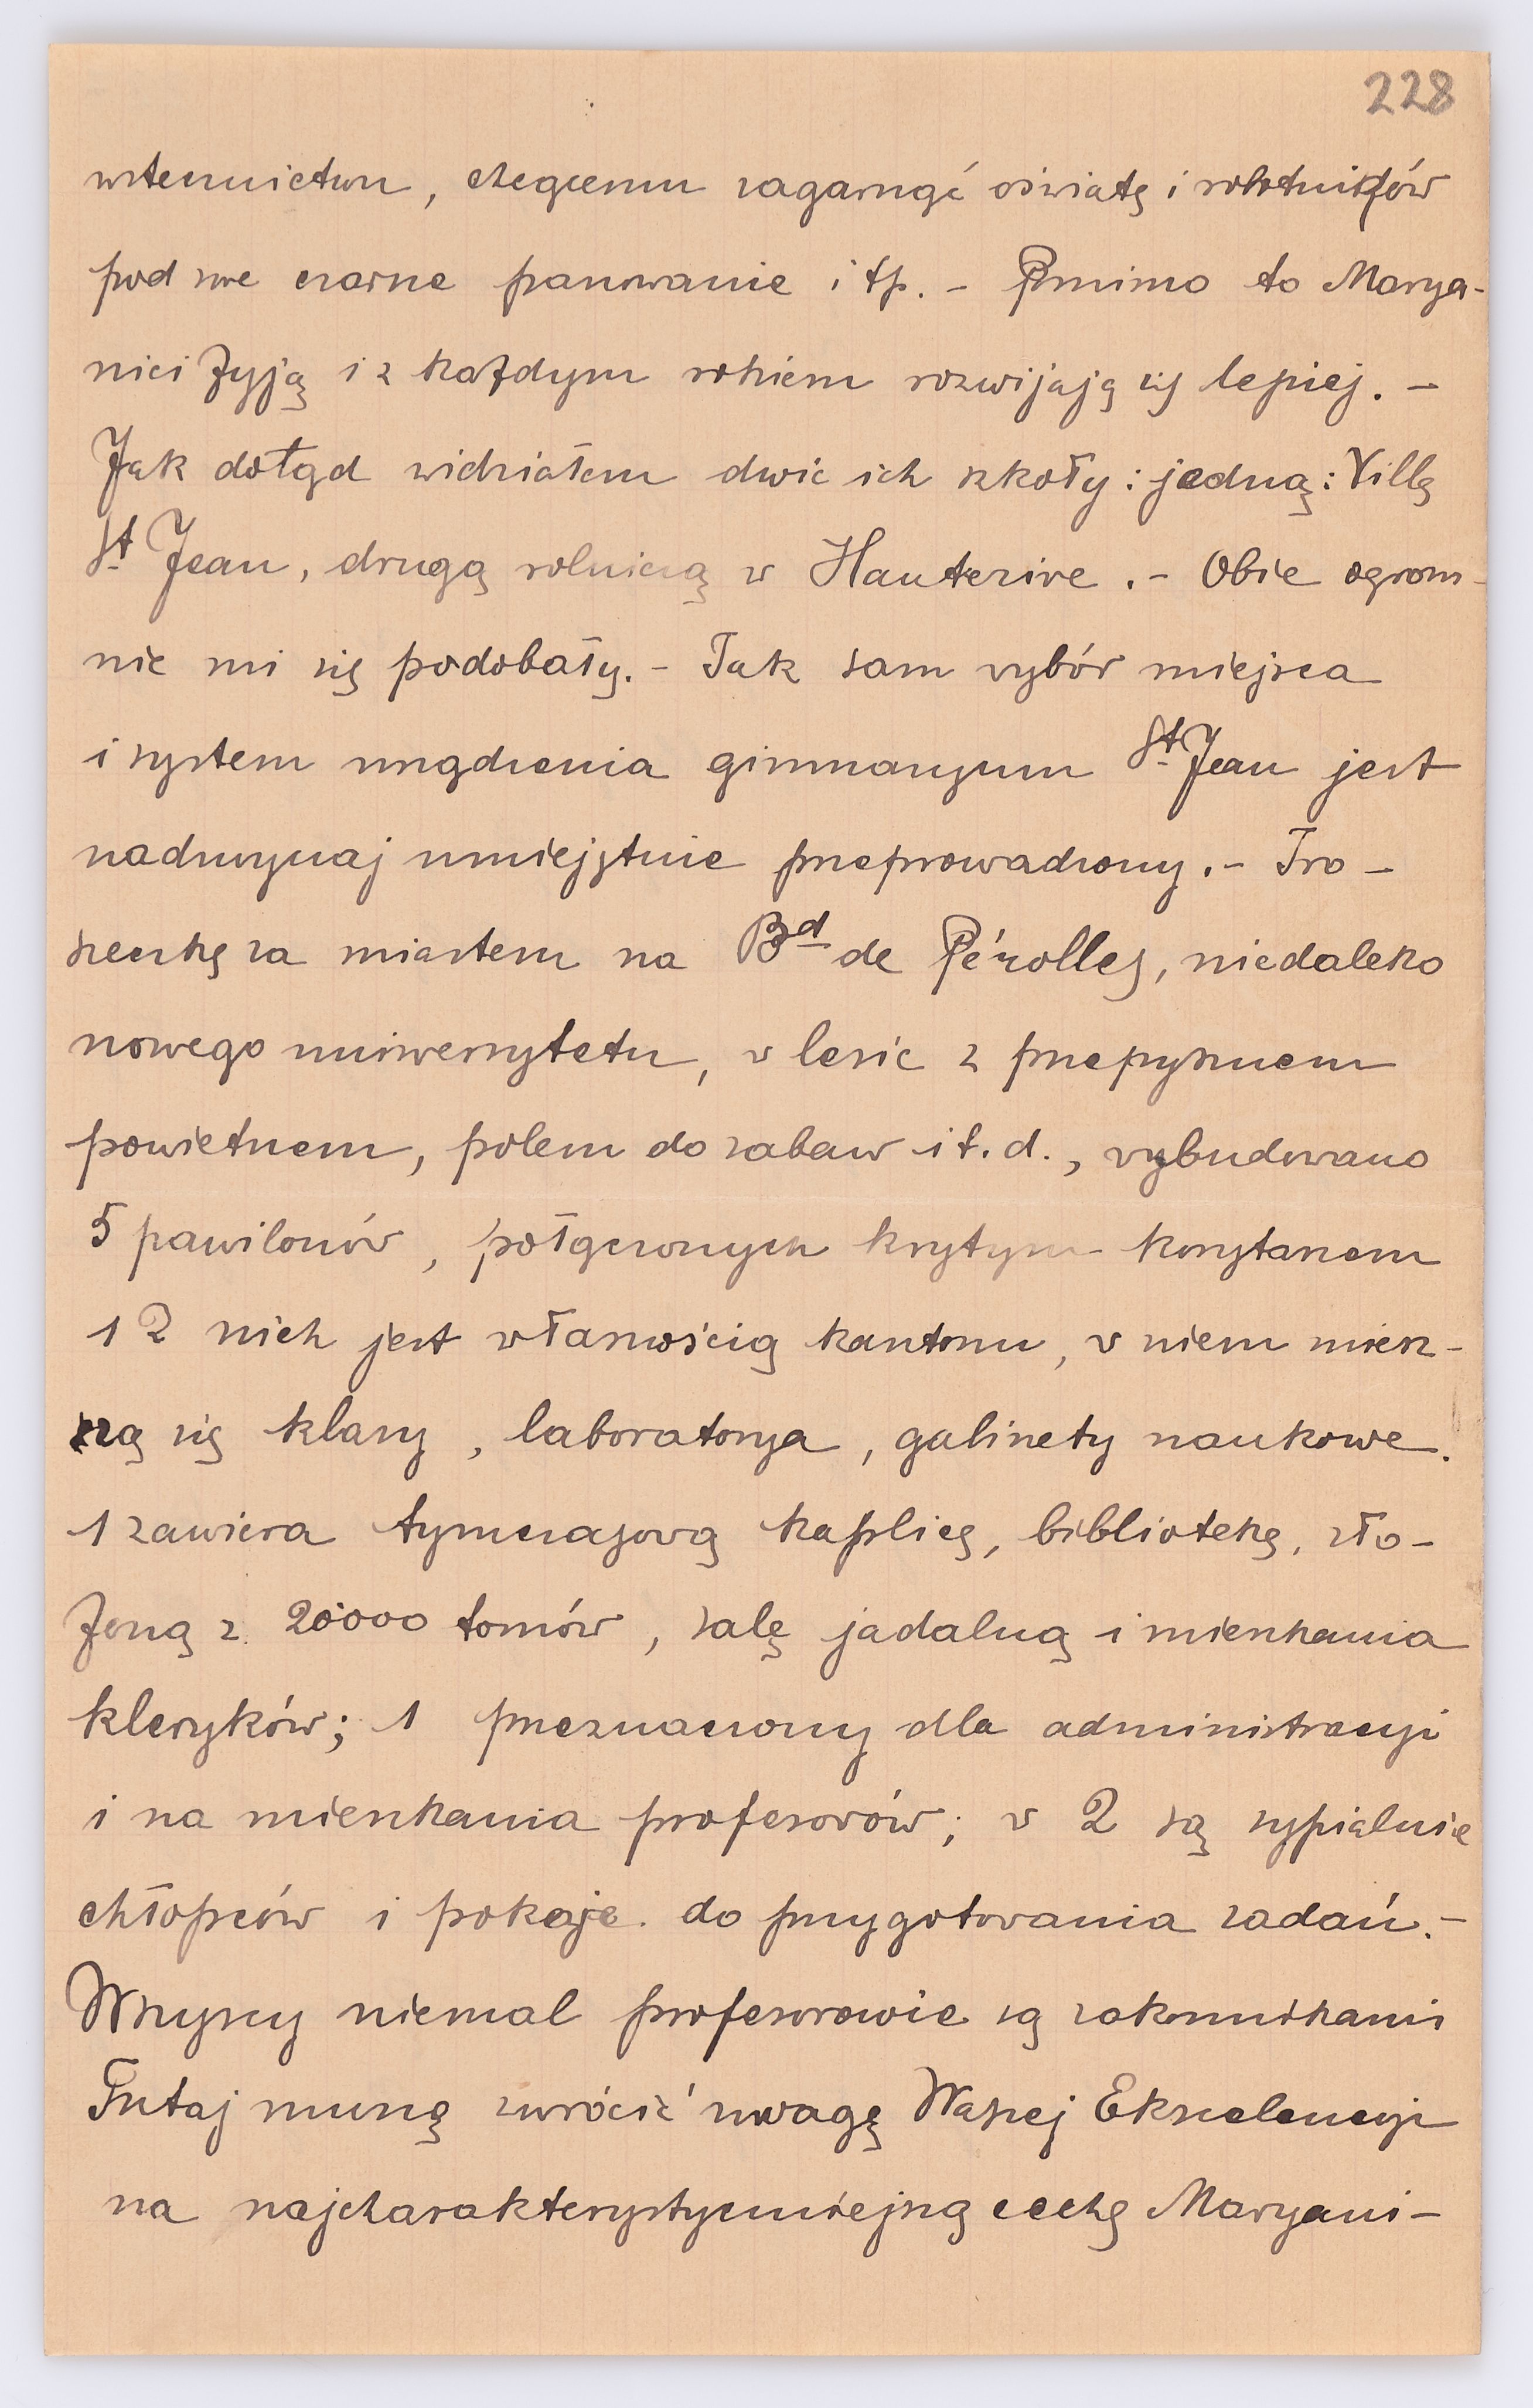 228
wstecznictwu, chcącemu zagarnąć oświatę i robotników
pod swe czarne panowanie i tp. - Pomimo to Marya-
nici żyją i z każdym rokiem rozwijają się lepiej. -
Jak dotąd widziałem dwie ich szkoły: jedną: Villę
St Jean, drugą rolniczą w Hauterive. - Obie ogrom-
nie mi się podobały. - Tak sam wybór miejsca
i system urządzenia gimnazyum St Jean jest
nadzwyczaj umiejętnie przeprowadzony. - Tro-
szeczkę za miastem na Bd de Pérolles, niedaleko
nowego uniwersytetu, w lesie z przepysznem
powietrzem, polem do zabaw i t. d., wybudowano
5 pawilonów, połączonych krytym korytarzem
1 z nich jest własnością kantonu, w niem miesz-
czą się klasy, laboratorya, gabinety naukowe.
1 zawiera tymczasową kaplicę, bibliotekę, zło-
żoną z 20000 tomów, salę jadalną i mieszkania
kleryków; 1 przeznaczony dla administracyi
i na mieszkania profesorów; w 2 są sypialnie
chłopców i pokoje do przygotowania zadań. -
Wszyscy niemal profesorowie są zakonnikami
Tutaj muszę zwrócić uwagę Waszej Ekscelencyi
na najcharakterystyczniejszą cechę Maryani-